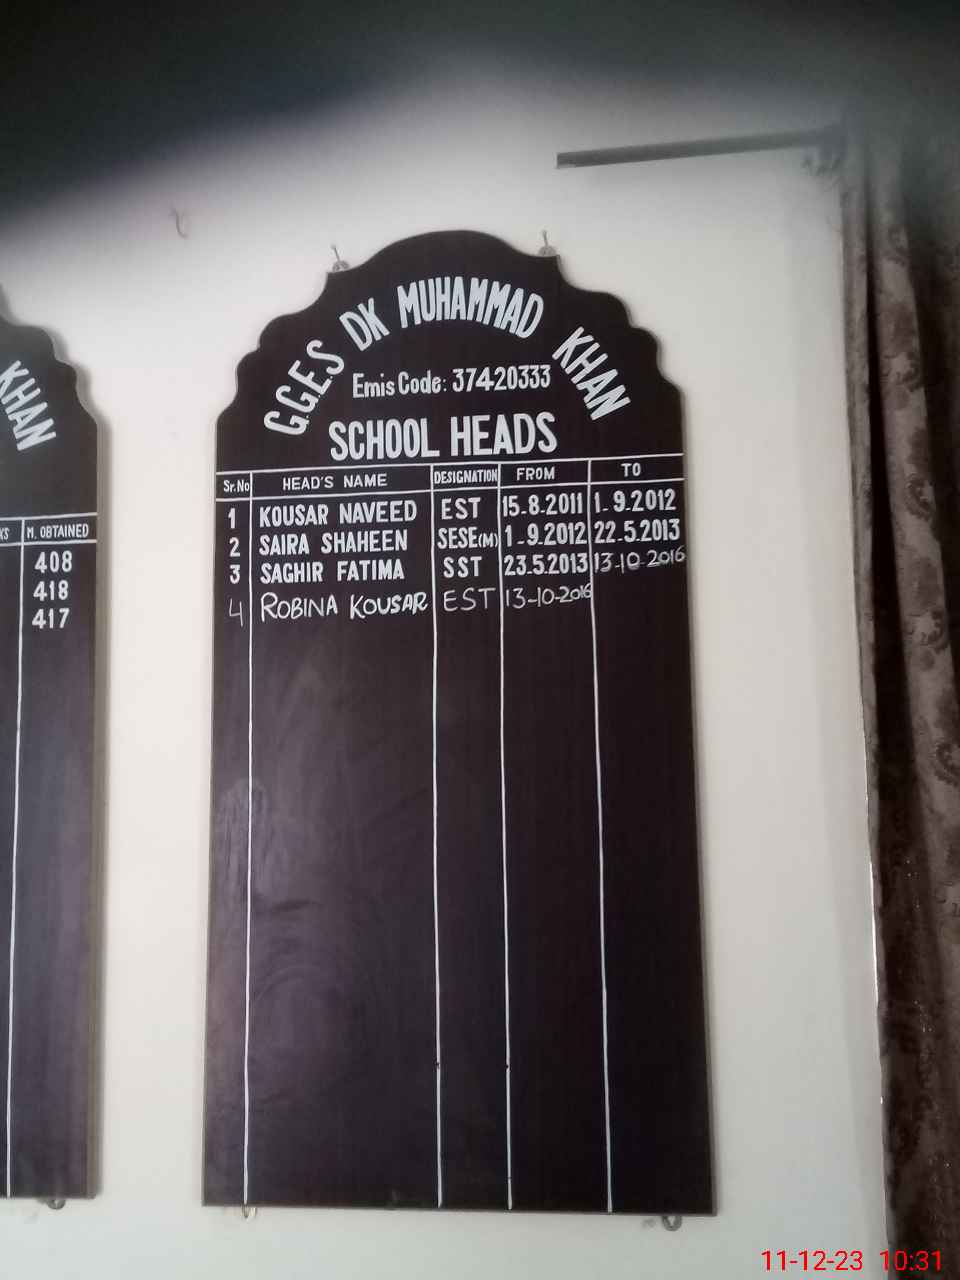 G.G.E.S DK MUHAMMAD KHAN
Emis Code: 37420333
SCHOOL HEADS
Sr.No HEAD'S NAME DESIGNATION FROM TO
1 KOUSAR NAVEED EST 15.8.2011 1-9.2012
2 SAIRA SHAHEEN SESE(M) 1-9.2012 22-5.2013
3 SAGHIR FATIMA SST 23.5.2013 13-10-2016
4 ROBINA KOUSAR EST 13-10-2016
KHAN
KS M. OBTAINED
408
418
417
11-12-23 10:31